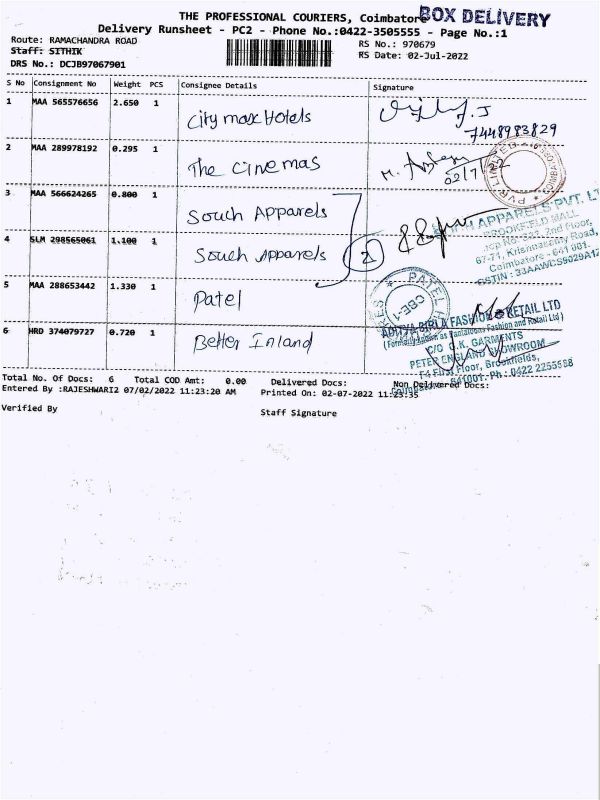 THE PROFESSIONAL COURIERS, Coimbatore BOX DELIVERY
Delivery Runsheet - PC2 - Phone No.:0422-3505555 - Page No.:1
Route: RAMACHANDRA ROAD
RS No.: 970679
Staff: SITHIK
RS Date: 02-Jul-2022
DRS No.: DCJB97067901
S No Consignment No Weight PCS Consignee Details Signature
1 MAA 565576656 2.650 1 City max Hotels
7448983829
2 MAA 289978192 0.295 1 The Cinemas
PVR LIMITED
3 MAA 566624265 0.800 1 Souch Apparels
APPARELS PVT. LT
BROOKEFIELD MALL
2nd Floor,
67-71, Krishnasamy Road,
Coimbatore - 641 001.
GSTIN : 33AAWCS9029A12
4 SLM 298565061 1.100 1 Souch Apparels 2
5 MAA 288653442 1.330 1 Patel
PATEL
CBE-1
ADITYA BIRLA FASHION & RETAIL LTD
(Formerly known as Pantaloon Fashion and Retail Ltd)
C/O G.K. GARMENTS
PETER ENGLAND SHOWROOM
First Floor, Brookfields,
641001. Ph : 0422 2255588
6 HRD 374079727 0.720 1 Better Inland
Total No. Of Docs: 6 Total COD Amt: 0.00 Delivered Docs: Non Delivered Docs:
Entered By :RAJESHWARI2 07/02/2022 11:23:20 AM Printed On: 02-07-2022 11:23:35
Verified By Staff Signature